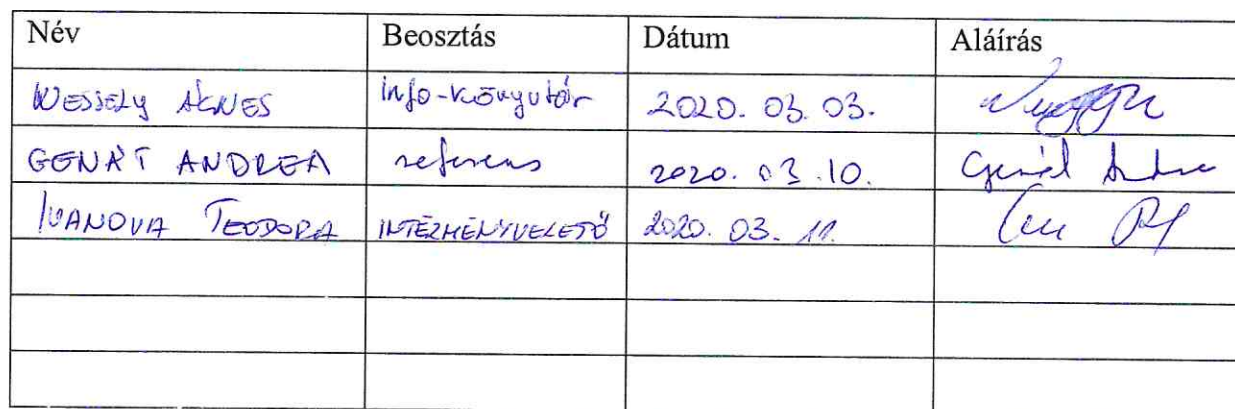 Név Beosztás Dátum Aláírás
Wessely Ágnes info-könyvtár 2020. 03. 03.
GENÁT ANDREA referens 2020. 03.10. Genát Andrea
IVANOVA TEODORA INTÉZMÉNYVEZETŐ 2020. 03. 11.